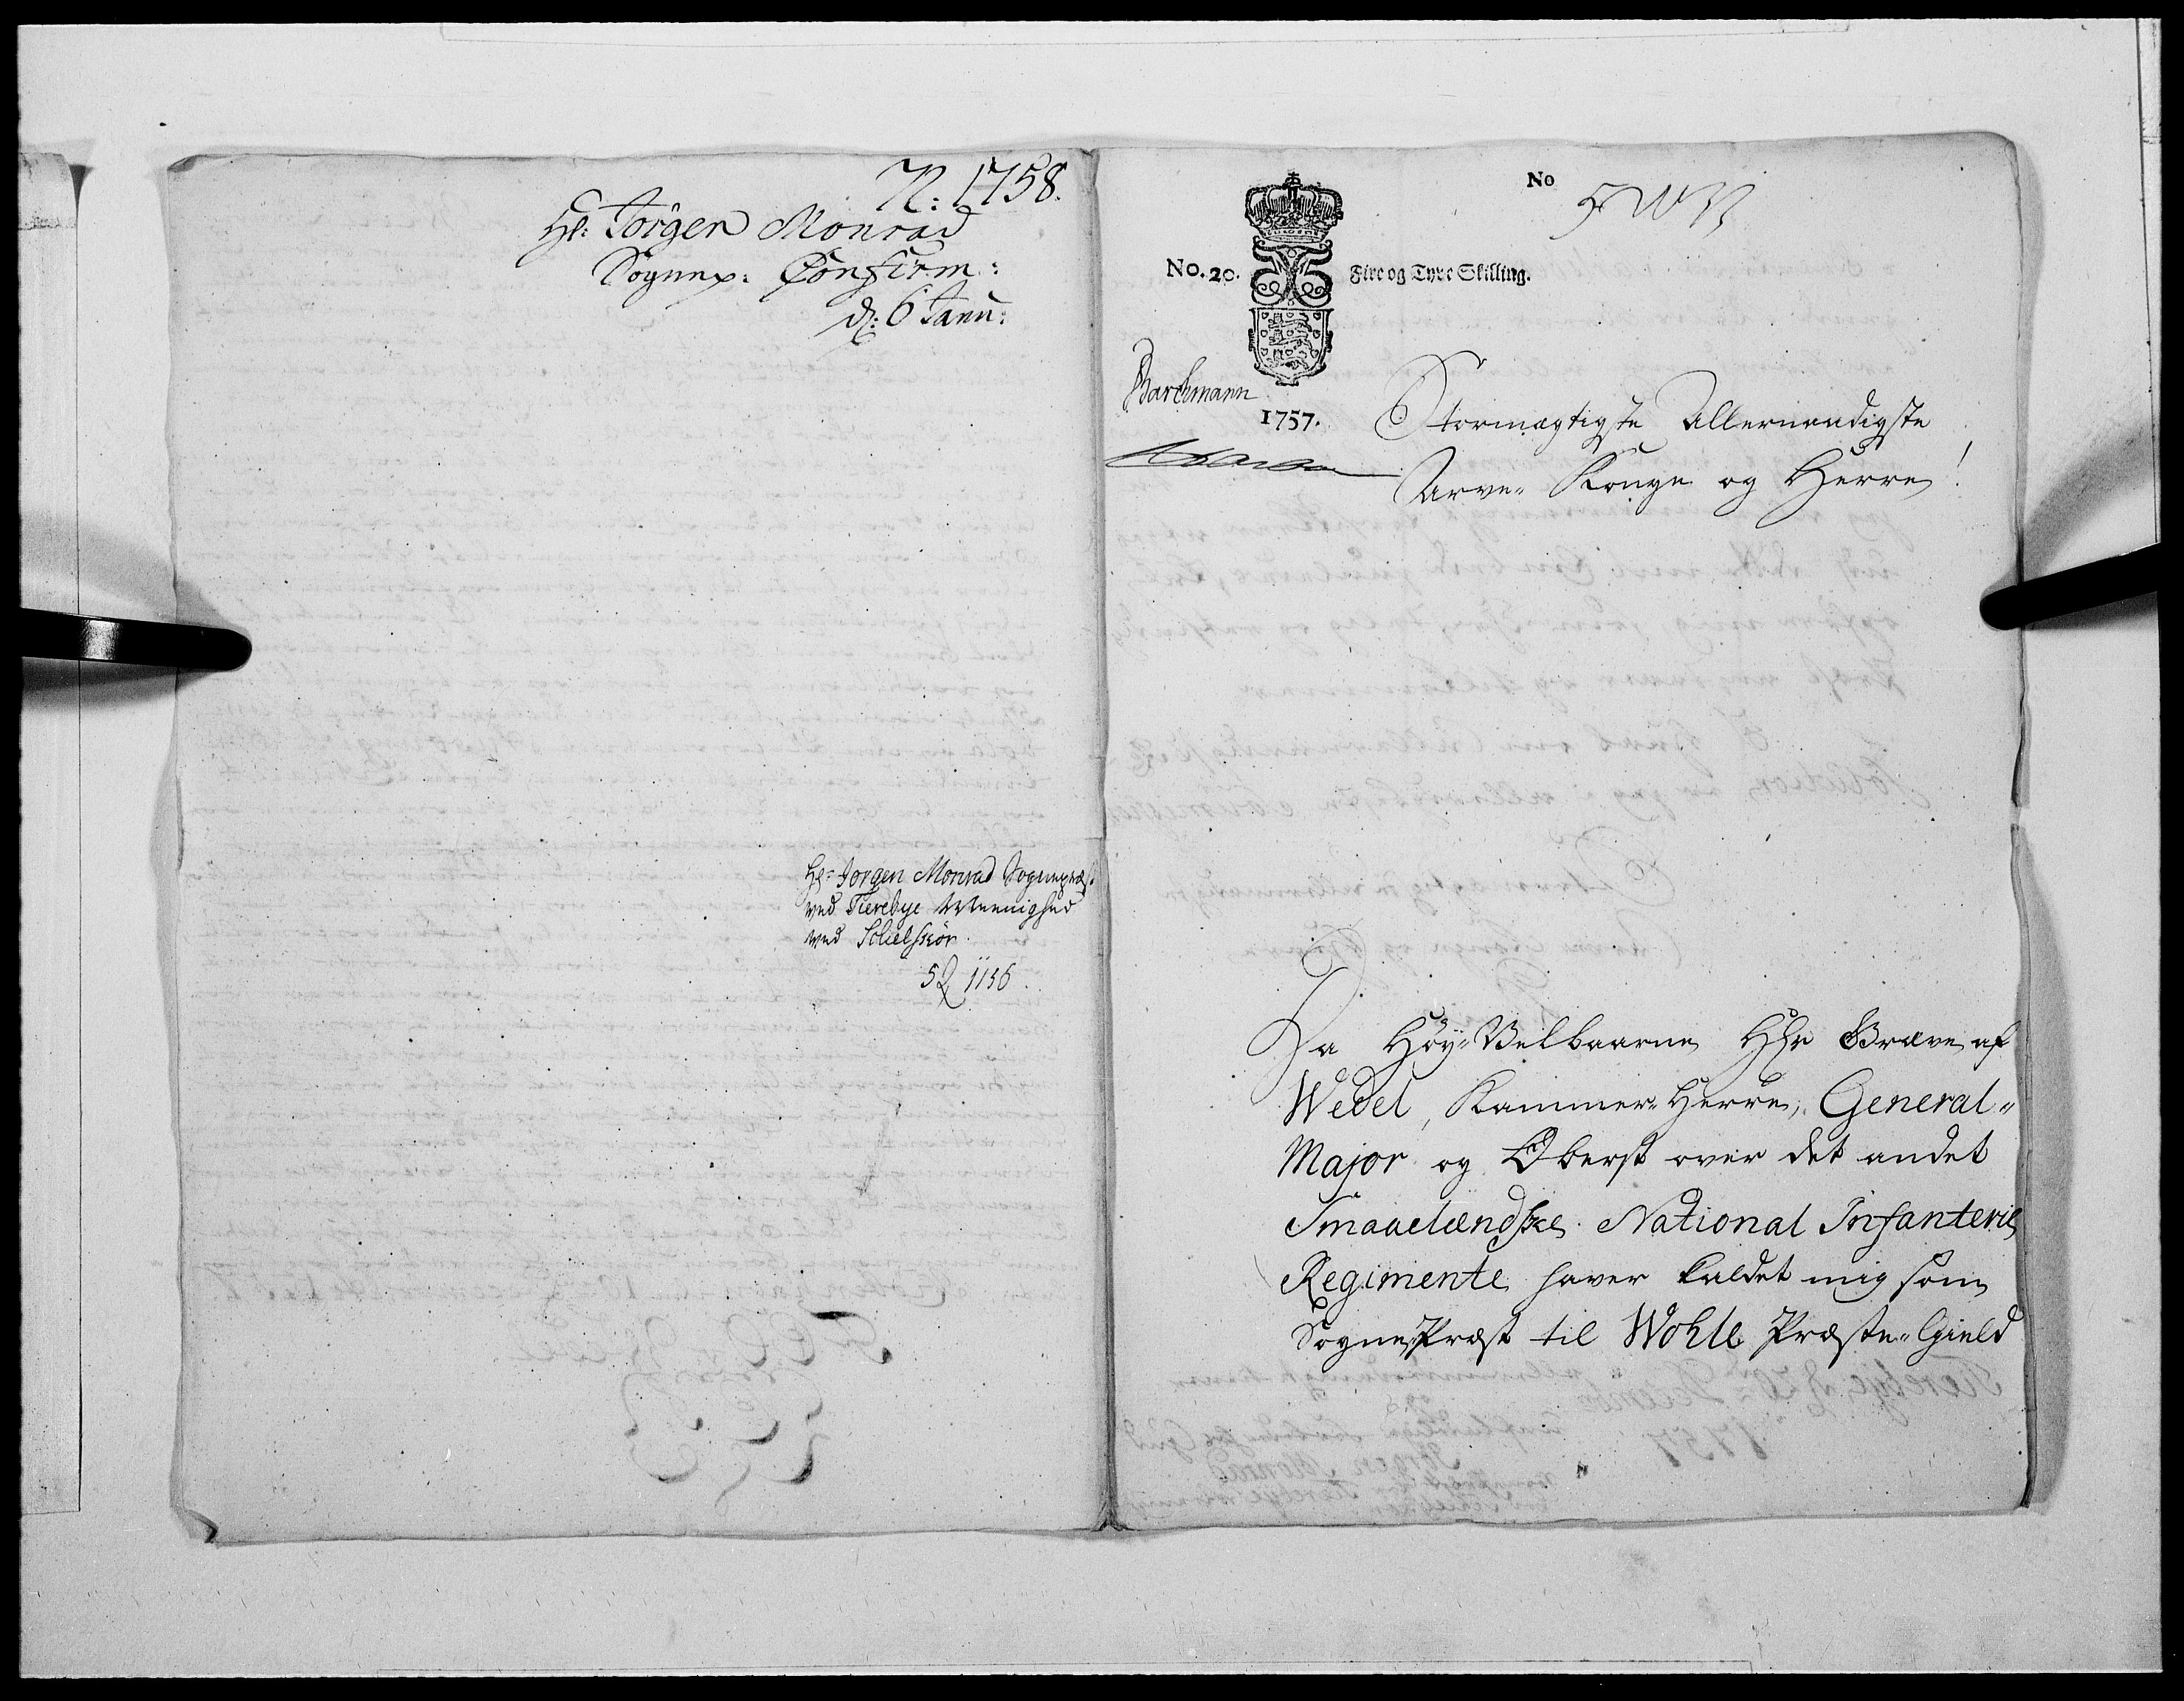 N: 1758.
Hr: Jörgen Monrad
Sognep: Confirm:
d: 6 Janu:
Hr: Jörgen Monrad Sognepræst
ved Tierebye Meenighed
ved Schielskör.
No
No. 20.
Fire og Tyve Skilling.
Barchmann
1757.
Stormægtigste Allernaadigste
Arve- Konge og Herre!
Da Höy-Velbaarne Hr Greve af
Wedel, Kammer-Herre, General-
Major og Oberst over det andet
Smaalændske National Infanterie
Regimente haver kaldet mig som
Sogne-Præst til Wohle Præste-Gield